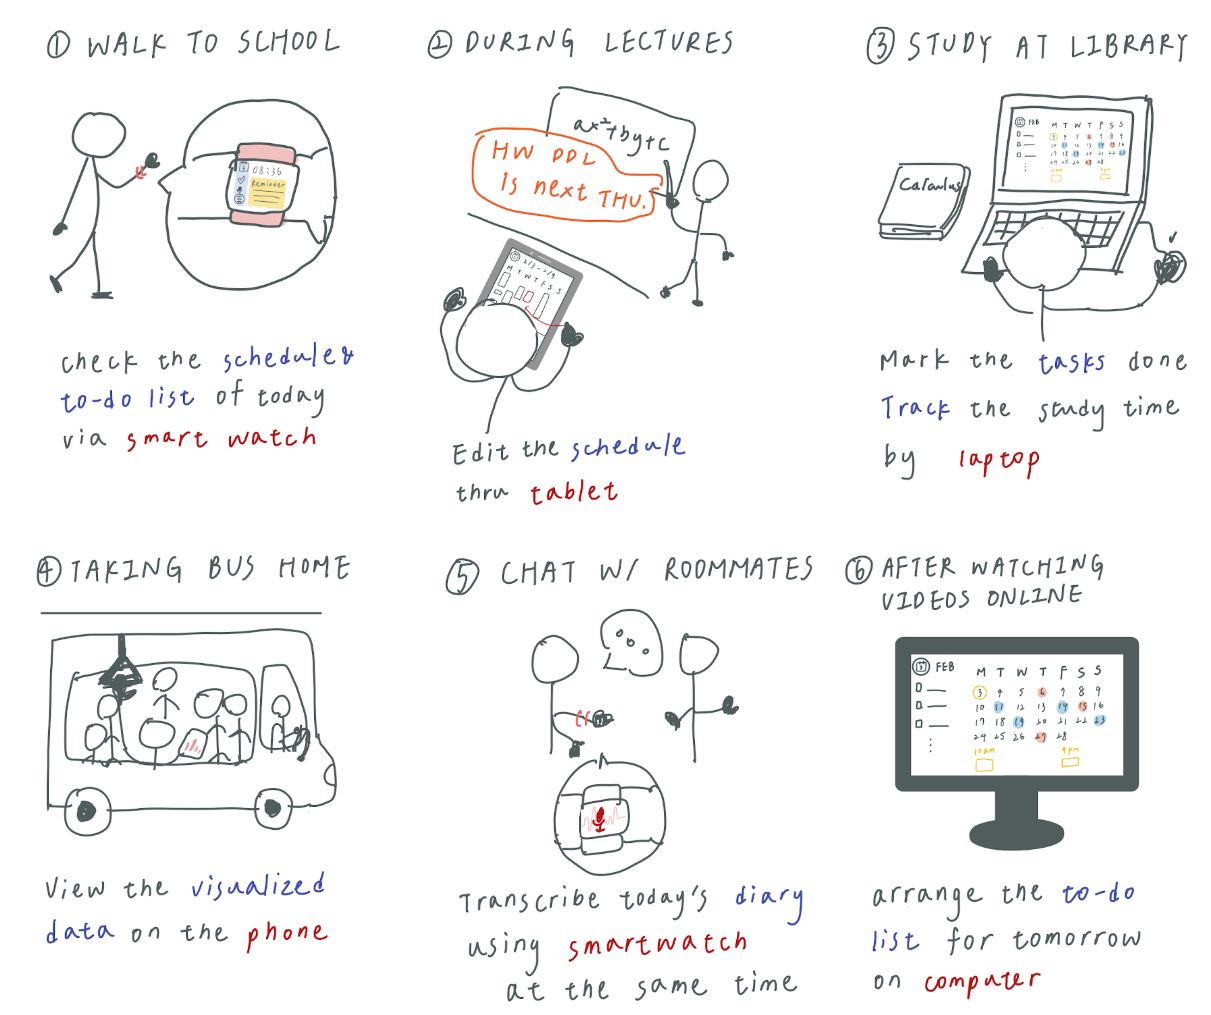 ① WALK TO SCHOOL
08:36
Reminder
check the schedule &
to-do list of today
via smart watch
② DURING LECTURES
ax²+by+c
HW DDL
is next THU.
2/3-2/9
M T W T F S S
Edit the schedule
thru tablet
③ STUDY AT LIBRARY
Calculus
FEB
M T W T F S S
3 4 5 6 7 8 9
10 11 12 13 14 15 16
17 18 19 20 21 22 23
24 25 26 27 28
10am 9pm
Mark the tasks done
Track the study time
by laptop
④ TAKING BUS HOME
View the visualized
data on the phone
⑤ CHAT W/ ROOMMATES
Transcribe today's diary
using smartwatch
at the same time
⑥ AFTER WATCHING
VIDEOS ONLINE
FEB
M T W T F S S
3 4 5 6 7 8 9
10 11 12 13 14 15 16
17 18 19 20 21 22 23
24 25 26 27 28
10am 9pm
arrange the to-do
list for tomorrow
on computer